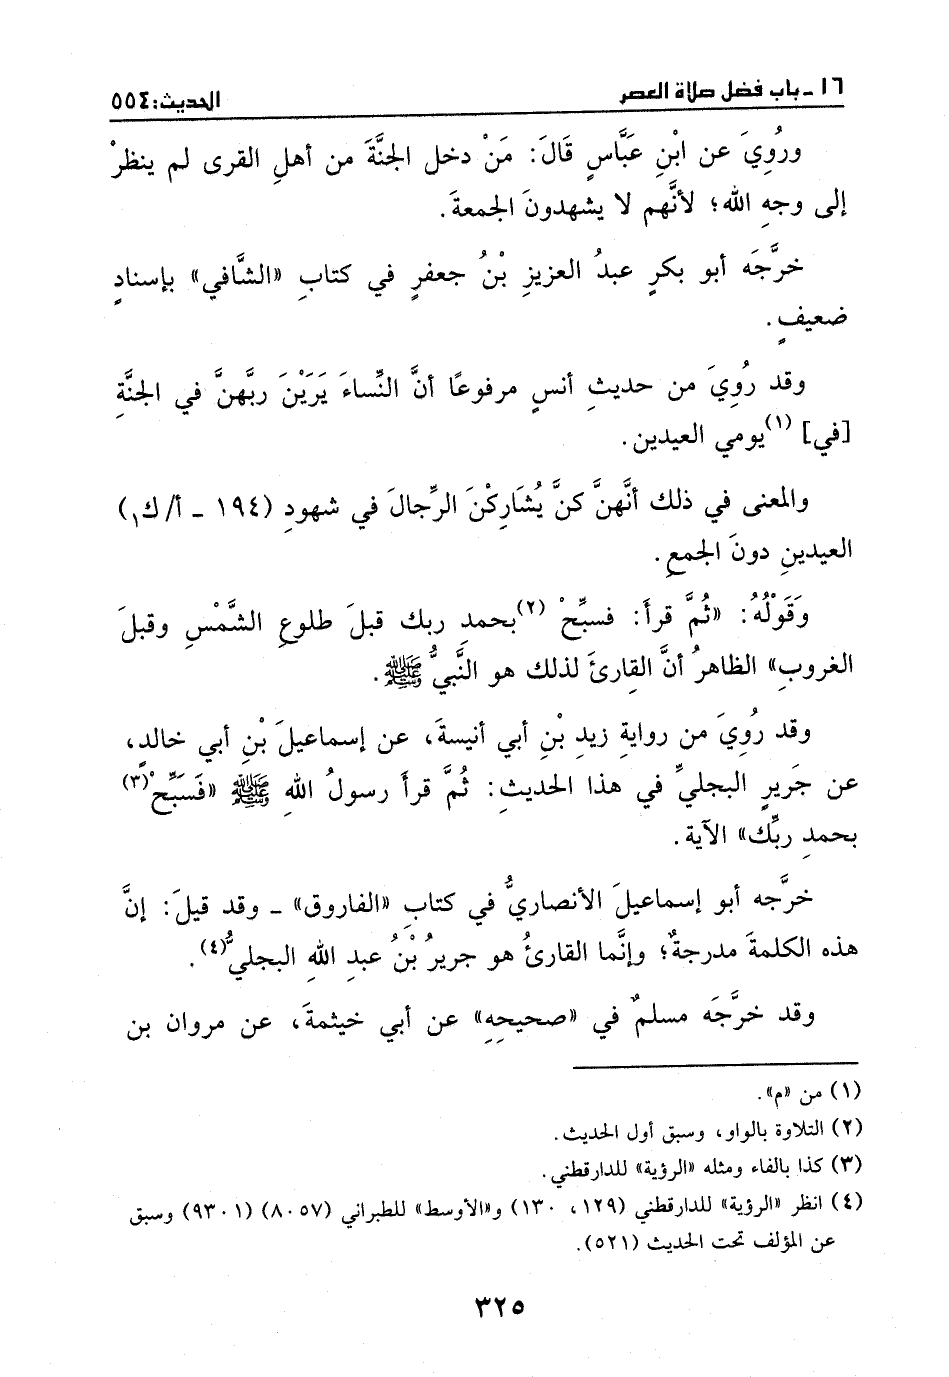 ١٦ - باب فضل صلاة العصر
الحديث: ٥٥٤
ورُوِيَ عن ابْنِ عَبَّاسٍ قَالَ: مَنْ دخل الجنَّةَ من أهلِ القرى لم ينظرْ
إلى وجهِ الله؛ لأنَّهم لا يشهدونَ الجمعةَ.
خرَّجَه أبو بكرٍ عبدُ العزيزِ بْنُ جعفرٍ في كتابِ «الشَّافي» بإسنادٍ
ضعيفٍ.
وقد رُوِيَ من حديثِ أنسٍ مرفوعًا أنَّ النِّساءَ يَرَيْنَ ربَّهنَّ في الجنَّةِ
[في] (١) يومي العيدين.
والمعنى في ذلك أنَّهنَّ كنَّ يُشَارِكْنَ الرِّجالَ في شهودِ (١٩٤ - أ/ك١)
العيدينِ دونَ الجمعِ.
وَقَوْلُهُ: «ثُمَّ قرأَ: فسبِّحْ (٢) بحمدِ ربك قبلَ طلوعِ الشَّمْسِ وقبلَ
الغروبِ» الظاهرُ أنَّ القارئَ لذلك هو النَّبيُّ ﷺ.
وقد رُوِيَ من روايةِ زيدِ بْنِ أبي أنيسةَ، عن إسماعيلَ بْنِ أبي خالدٍ،
عن جَريرٍ البجليِّ في هذا الحديثِ: ثُمَّ قرأَ رسولُ اللهِ ﷺ «فَسَبِّحْ (٣)
بحمدِ ربِّك» الآية.
خرَّجه أبو إسماعيلَ الأنصاريُّ في كتابِ «الفاروق» - وقد قيلَ: إنَّ
هذه الكلمةَ مدرجةٌ؛ وإنَّما القارئُ هو جريرُ بْنُ عبدِ اللهِ البجليُّ (٤).
وقد خرَّجَه مسلمٌ في «صحيحِهِ» عن أبي خيثمةَ، عن مروان بن
(١) من «م».
(٢) التلاوة بالواو، وسبق أول الحديث.
(٣) كذا بالفاء ومثله «الرؤية» للدارقطني.
(٤) انظر «الرؤية» للدارقطني (١٢٩، ١٣٠) و«الأوسط» للطبراني (٨٠٥٧) (٩٣٠١) وسبق
عن المؤلف تحت الحديث (٥٢١).
٣٢٥